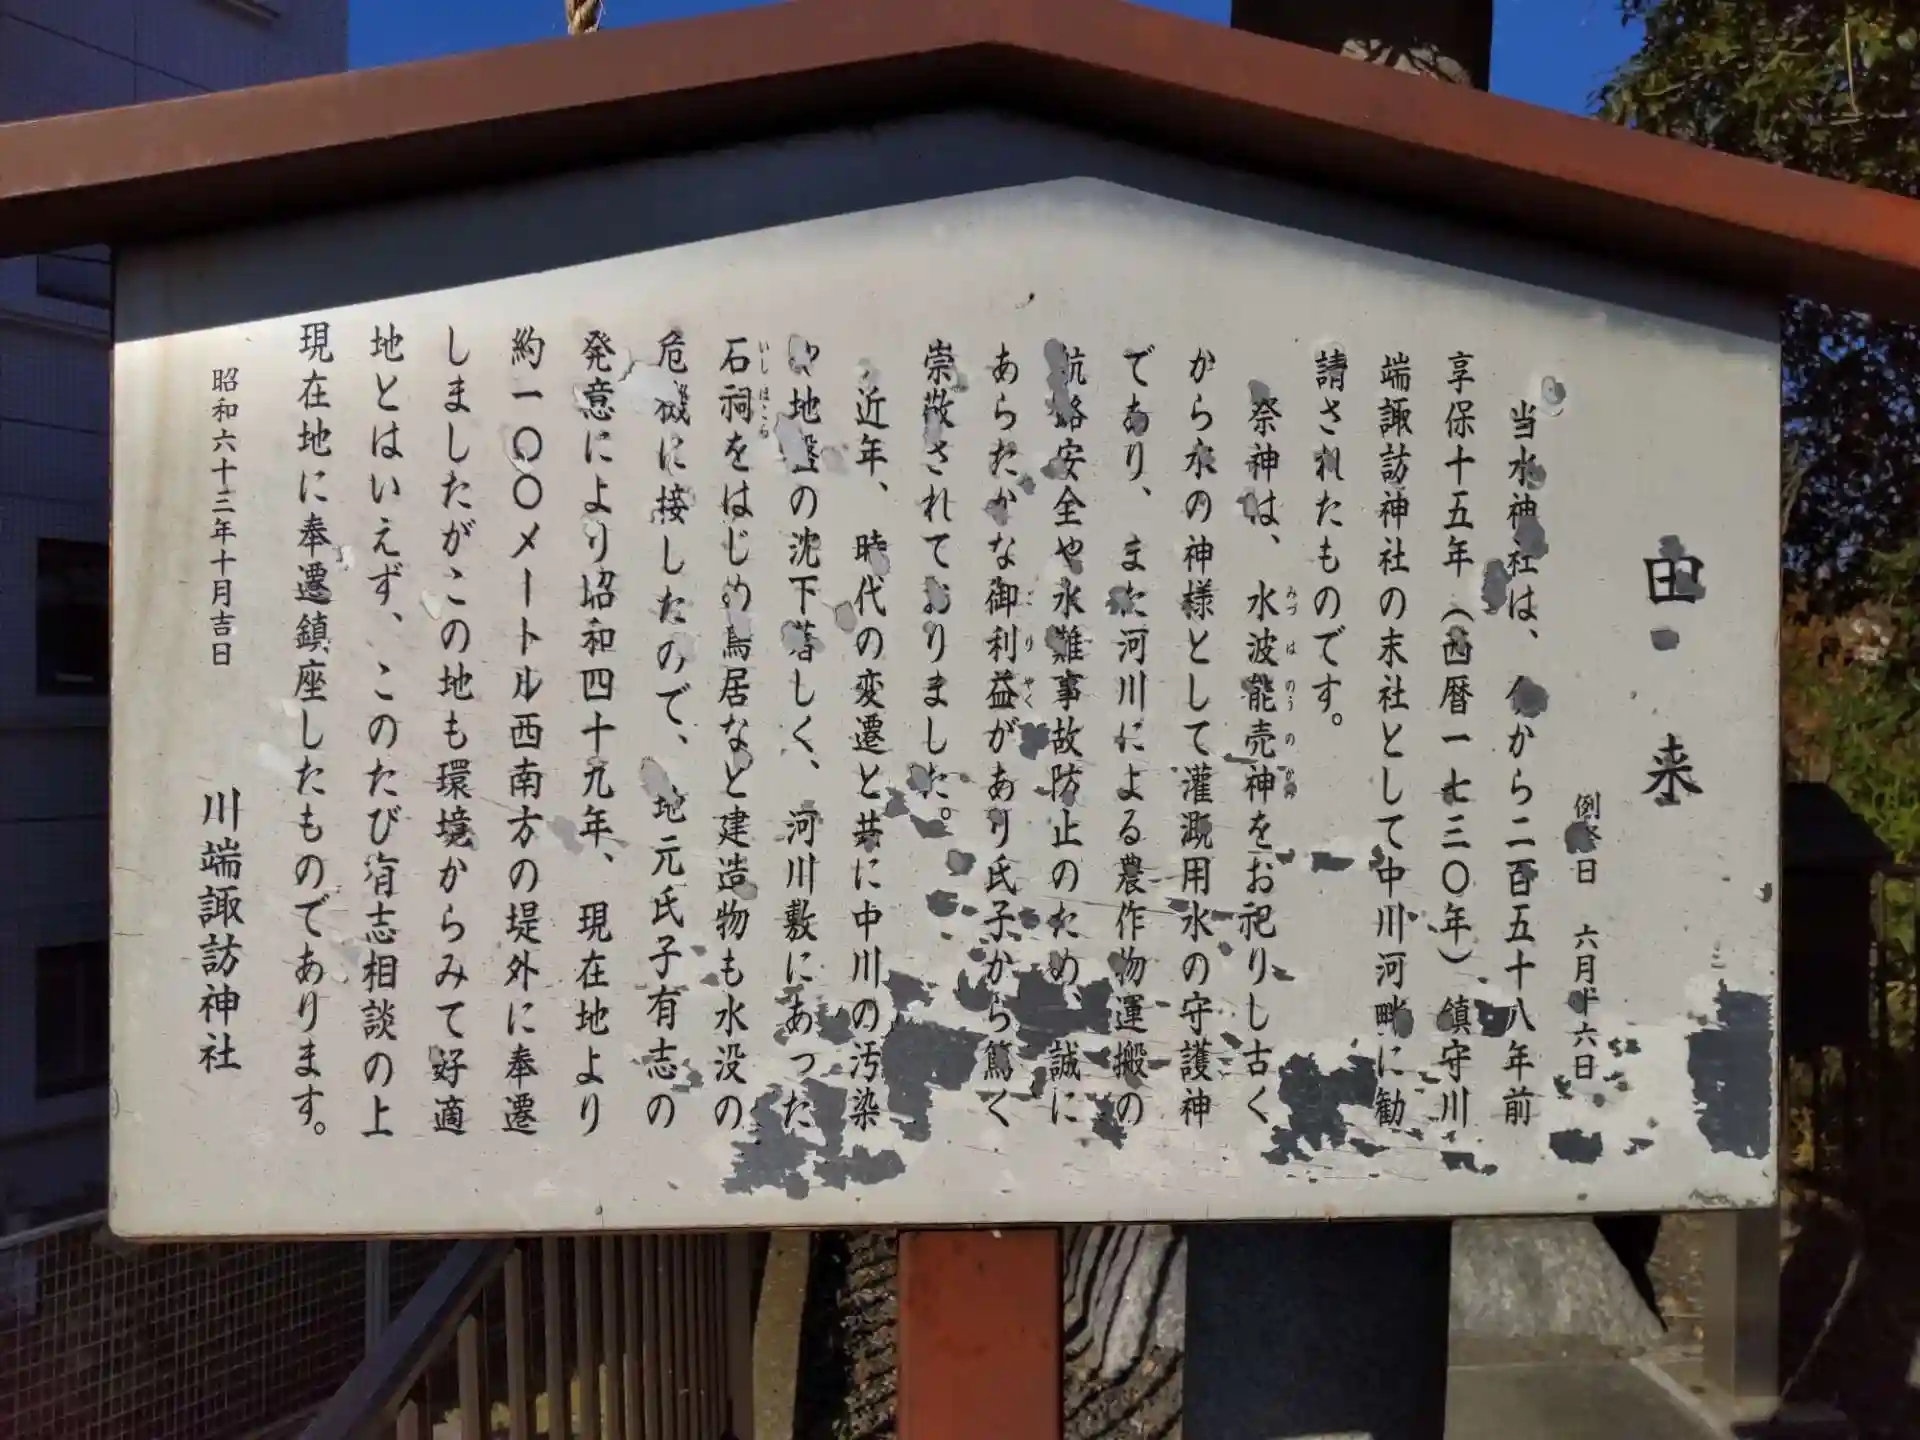 由来
例祭日 六月十六日
当水神社は、今から二百五十八年前
享保十五年(西暦一七三〇年)鎮守川
端諏訪神社の末社として中川河畔に勧
請されたものです。
祭神は、水波能売神をお祀りし古く
みづはのうのかみ
から水の神様として灌漑用水の守護神
であり、また河川による農作物運搬の
航路安全や水難事故防止のため、誠に
あらたかな御利益があり氏子から篤く
ごりやく
崇敬されておりました。
近年、時代の変遷と共に中川の汚染
や地盤の沈下著しく、河川敷にあった
石祠をはじめ鳥居など建造物も水没の
いしほこら
危機に接したので、地元氏子有志の
発意により昭和四十九年、現在地より
約一〇〇メートル西南方の堤外に奉遷
しましたがこの地も環境からみて好適
地とはいえず、このたび有志相談の上
現在地に奉遷鎮座したものであります。
昭和六十三年十月吉日
川端諏訪神社